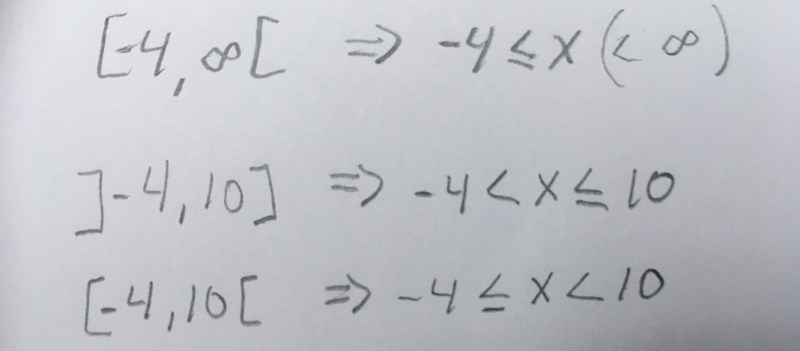 [-4, ∞[ ⇒ -4 ≤ x (< ∞)
]-4, 10] ⇒ -4 < x ≤ 10
[-4, 10[ ⇒ -4 ≤ x < 10